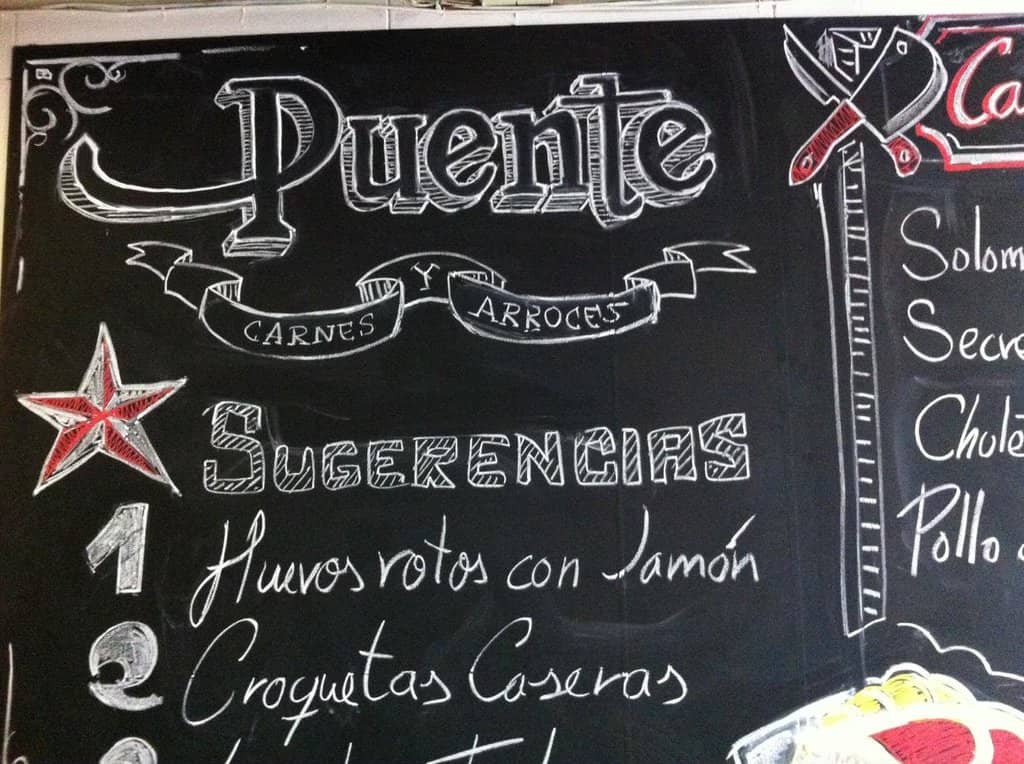 Puente
CARNES Y ARROCES
SUGERENCIAS
1 Huevos rotos con Jamón
2 Croquetas Caseras
Pollo